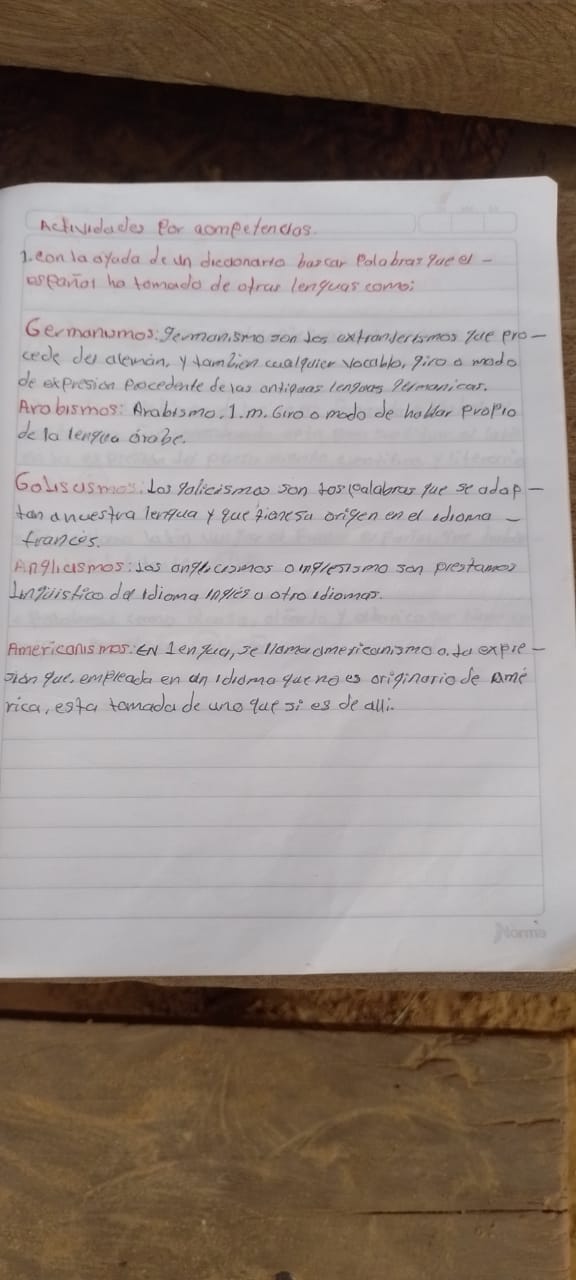 Actividades Por competencias.
1. con la ayuda de un diccionario buscar Palabras que el -
español ha tomado de otras lenguas como:
Germanismos: germanismo son los extranjerismos que pro-
cede del alemán, y tambien cualquier vocablo, giro o modo
de expresion Procedente de las antiguas lenguas germanicas.
Arabismos: Arabismo. 1. m. Giro o modo de hablar propio
de la lengua árabe.
Galisismos: Los galicismos son los palabras que se adap-
tan a nuestra lengua y que tiene su origen en el idioma -
francés.
Anglicismos: Los anglicismos o inglesismo son prestamos
Lingüistico del idioma inglés a otro idiomas.
Americanismos: EN lengua, se llama americanismo a la expre-
sion que, empleada en un idioma que no es originario de Amé
rica, esta tomada de uno que si es de alli.
Norma